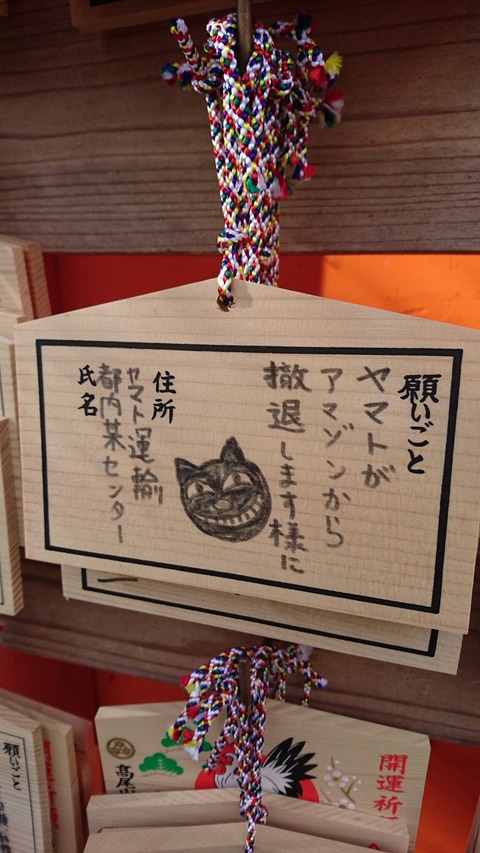 願いごと
ヤマトが
アマゾンから
撤退します様に
住所
ヤマト運輸
都内某センター
氏名
開運祈
高尾
願いごと